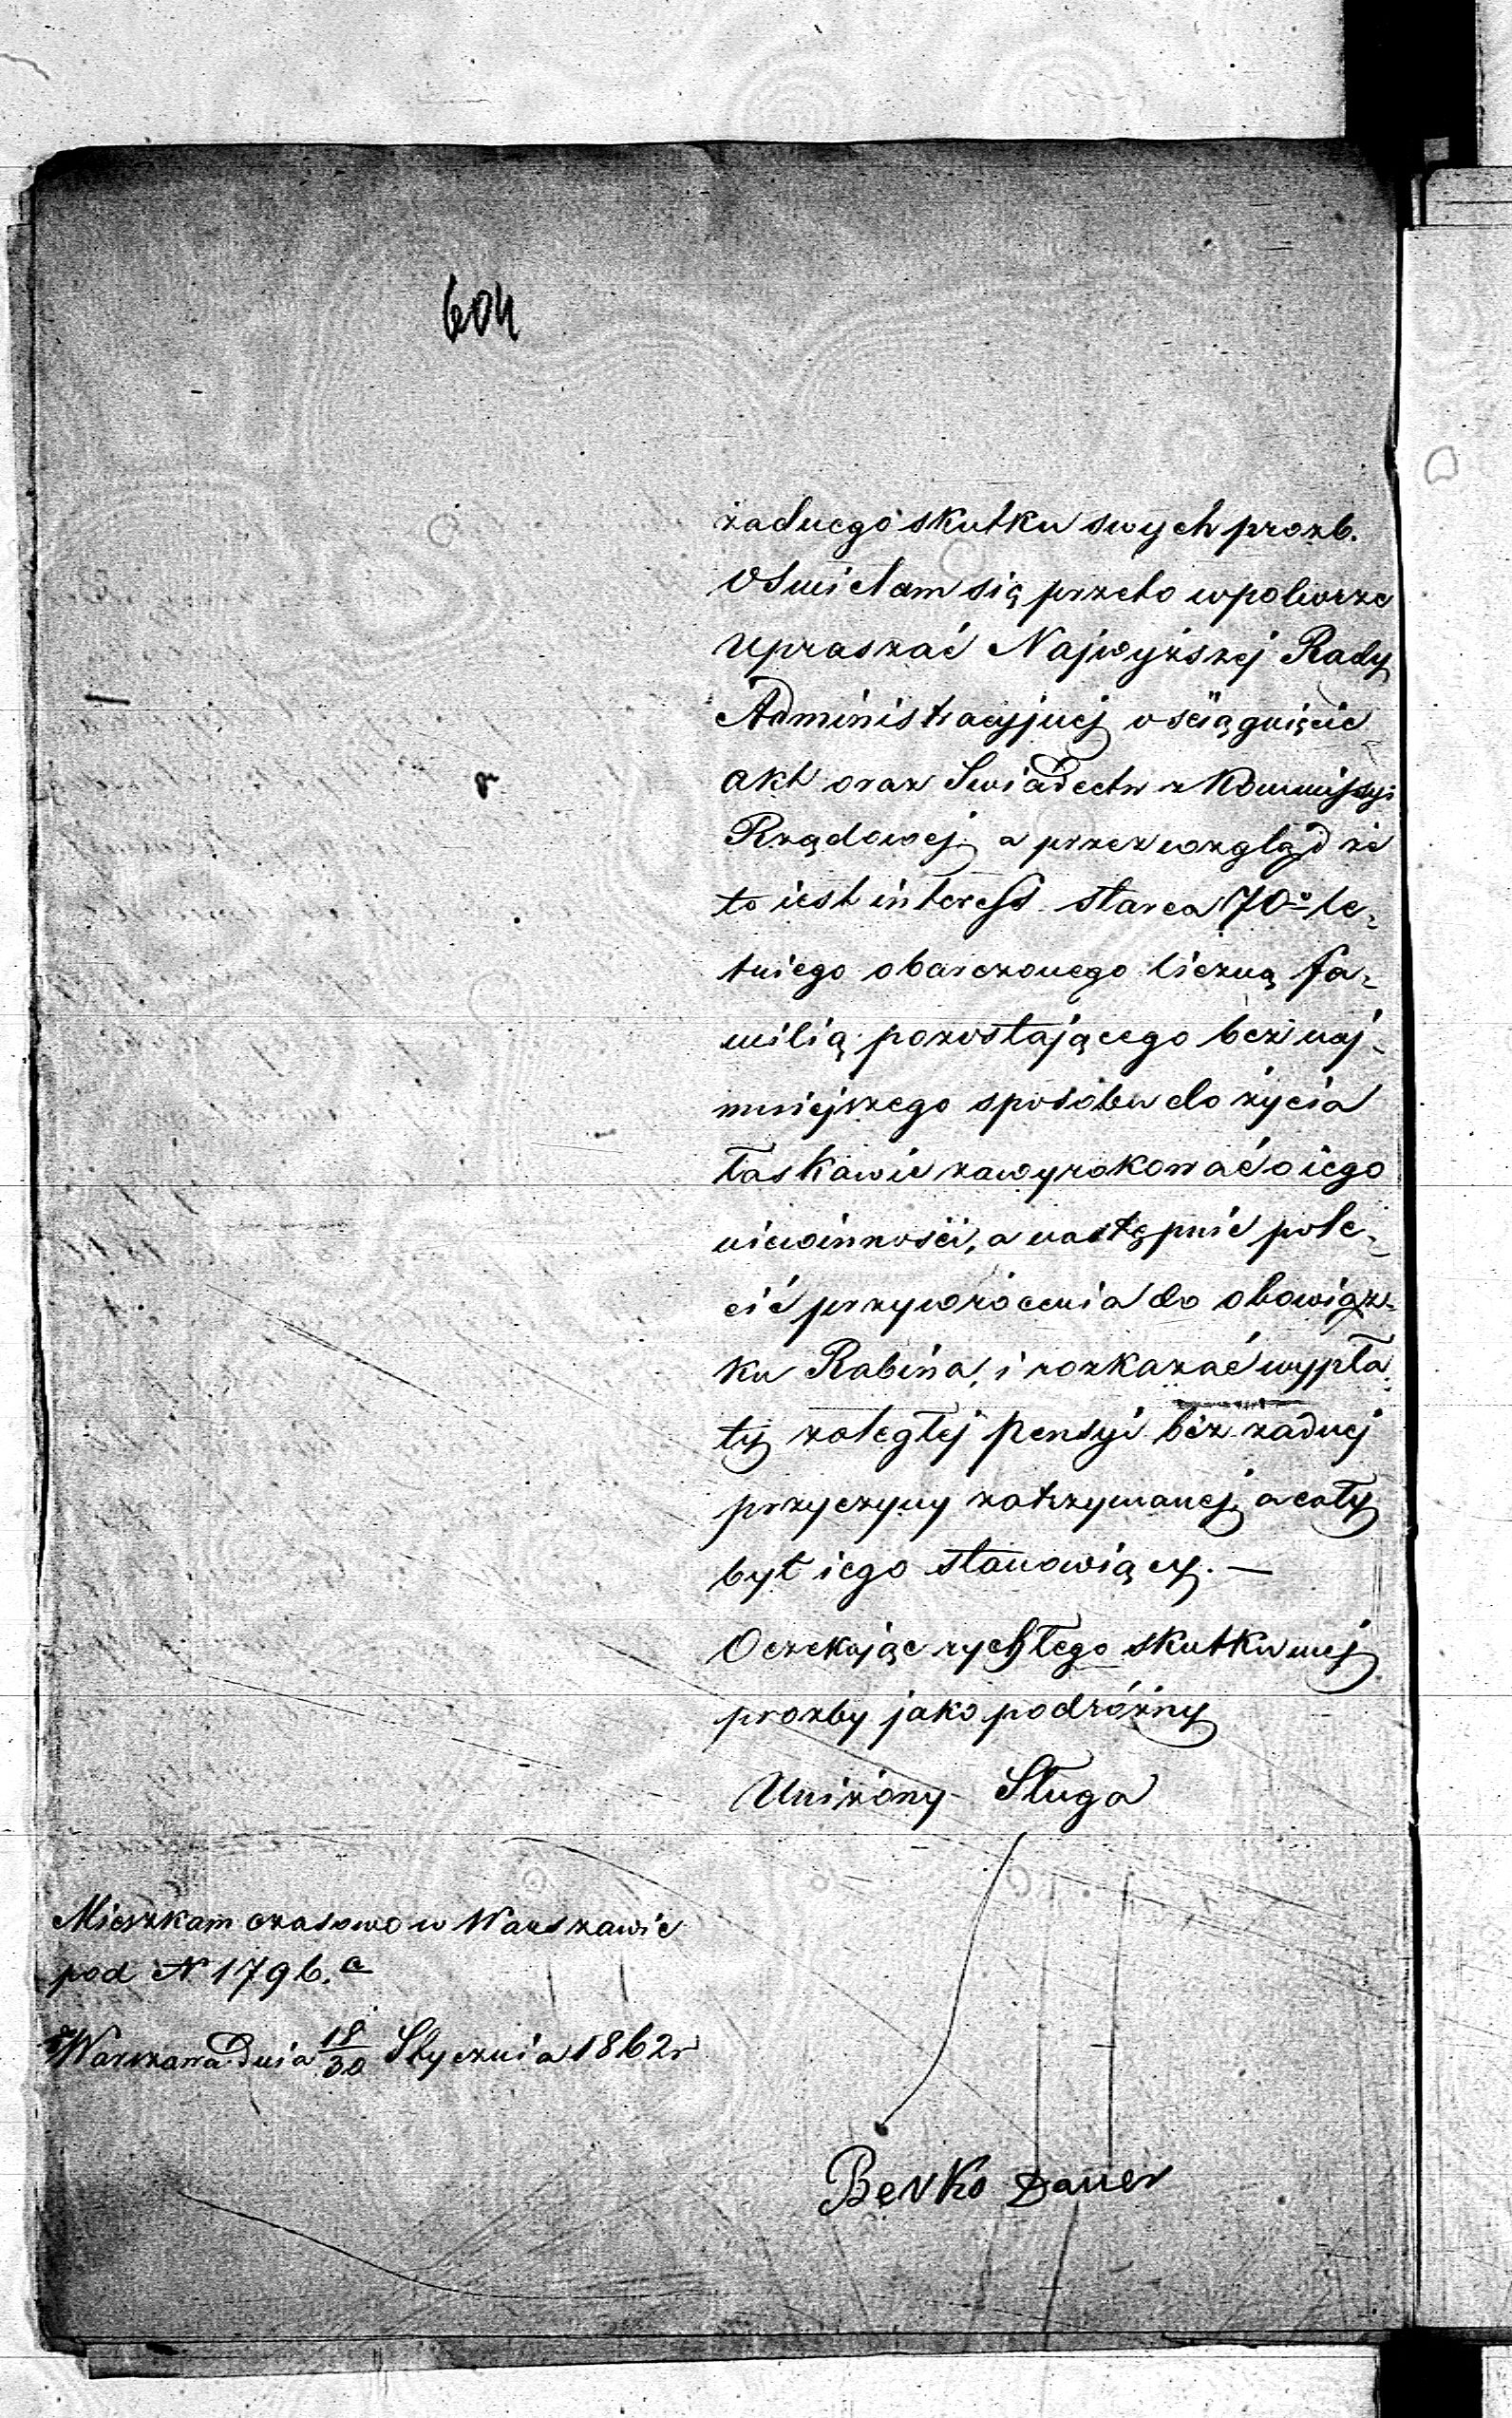 604
żadnego skutku swych prozb.
Osmielam się przeto wpokorze
upraszać Najwyższej Rady
Administracyjnej o ściągnięcie
akt oraz Swiadectw z Kommissyi
Rządowej, a przez wzgląd że
to iest interess starca 70o le-
tniego obarczonego liczną fa-
milią pozostającego bez naj-
mniejszego sposobu do życia
łaskawie zawyrokować o iego
niewinności, a następnie pole-
cić przywrócenia do obowiąz-
ku Rabina, i rozkazać wypła-
ty zaległej pensyi bez żadnej
przyczyny zatrzymanej, a cały
byt iego stanowiący. —
Oczekując rychłego skutku mej
prozby jako podróżny
Uniżony Sługa
Mieszkam czasowo w Warszawie
pod N 1796. a
Warszawa Dnia 18/30 Stycznia 1862 r
Berko Dauer